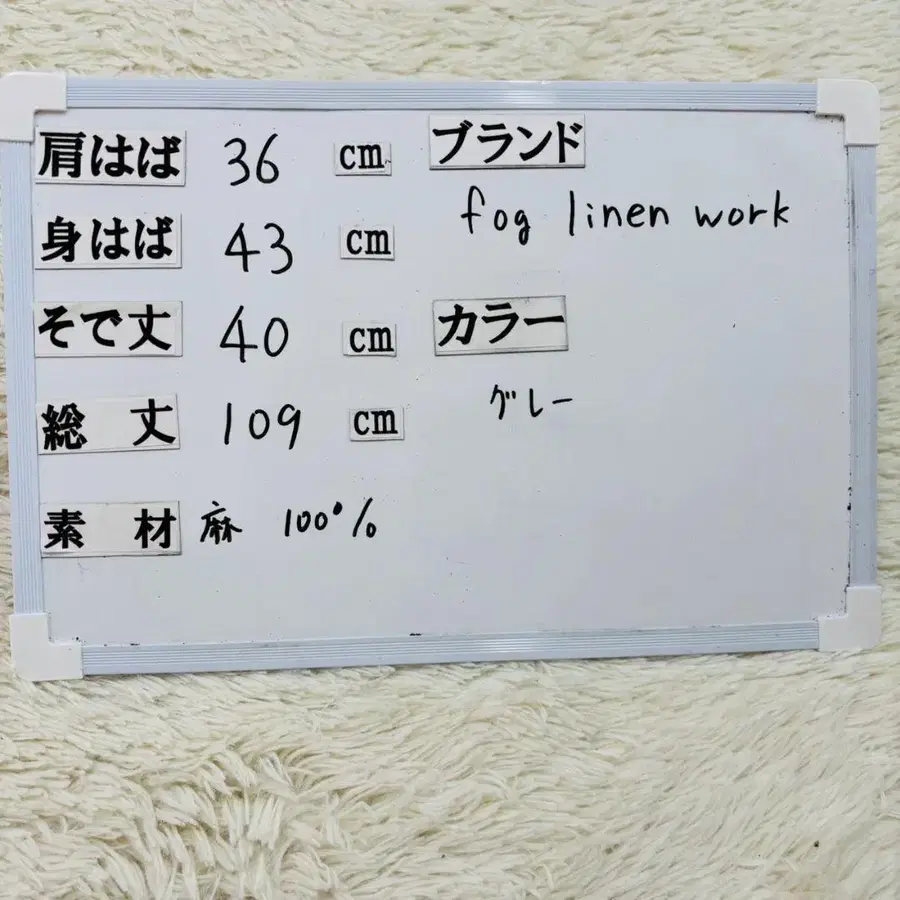 肩はば 36 cm
身はば 43 cm
そで丈 40 cm
総 丈 109 cm
素 材 麻 100%
ブランド
fog linen work
カラー
グレー